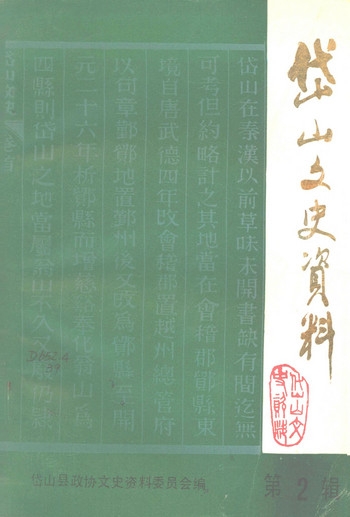 岱山文史資料
岱山在秦漢以前草昧未開書缺有間迄無
可考但約略計之其地當在會稽郡鄮縣東
境自唐武德四年改會稽郡置越州總管府
以句章鄞鄮地置鄞州後又改為鄮縣至開
元二十六年析鄮縣而增慈谿奉化翁山為
四縣則岱山之地當屬翁山不久
岱山文史
岱山县政协文史资料委员会编
第2辑